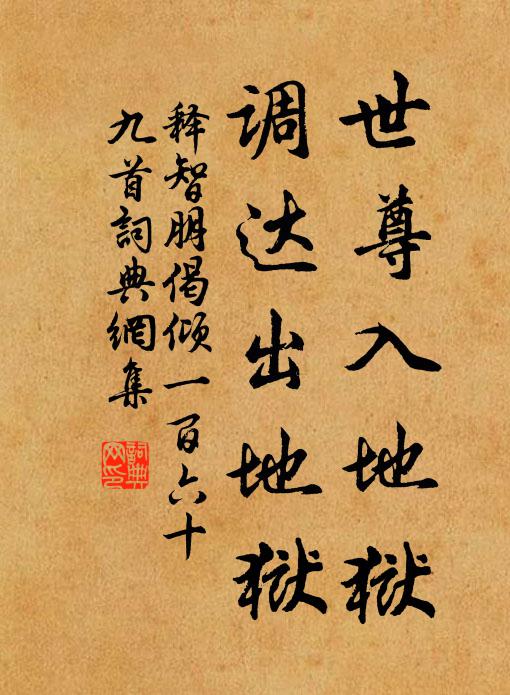 世尊入地獄
调达出地獄
释智朋偈倾一百六十
九首詞典網集
詞典網印